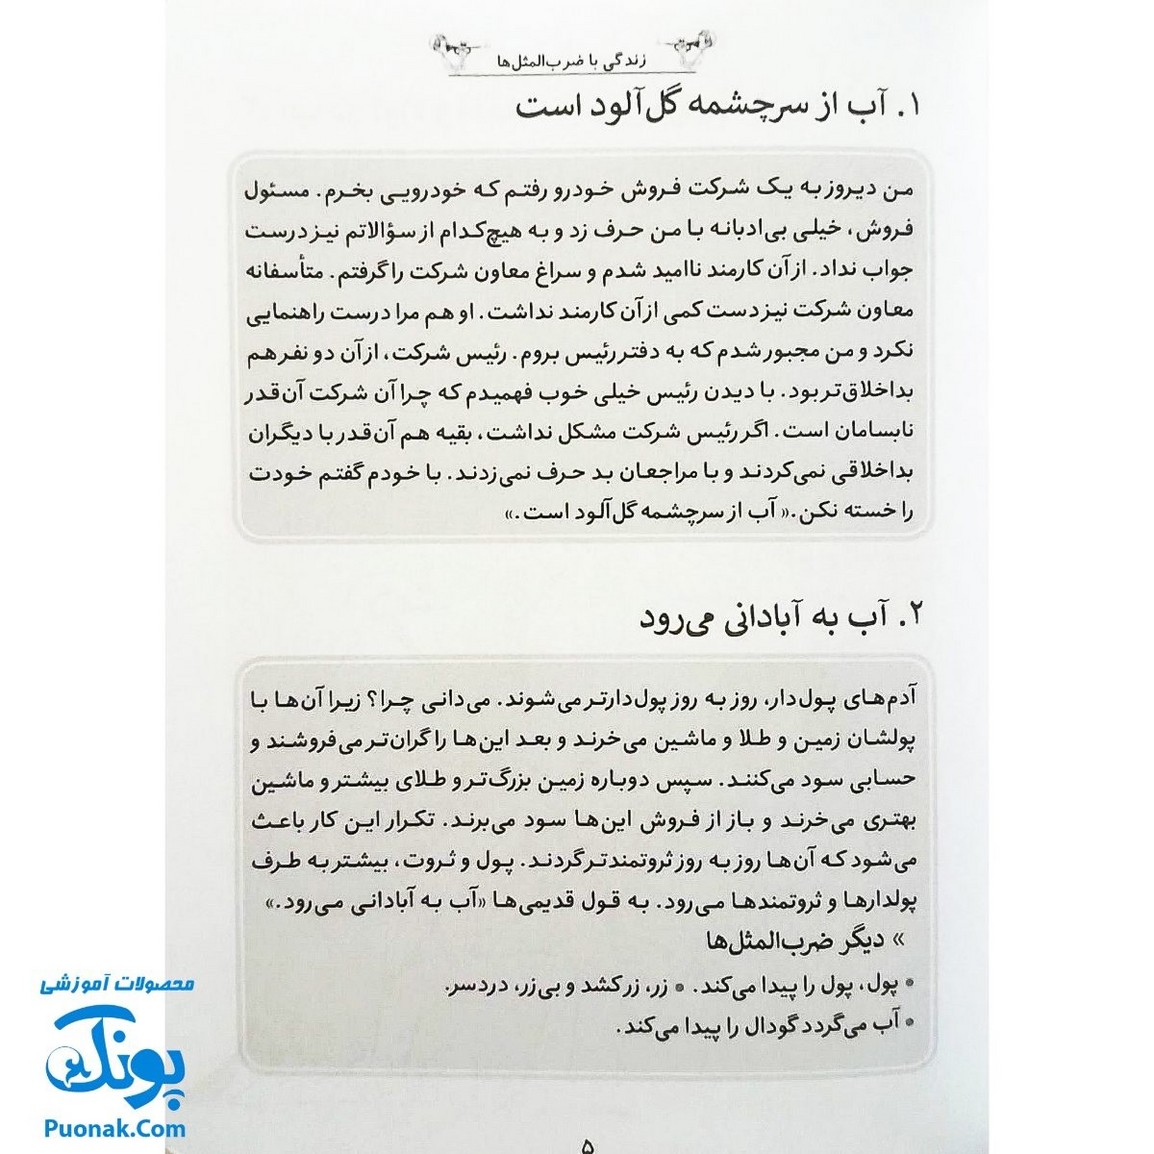 زندگی با ضرب‌المثل‌ها
۱. آب از سرچشمه گل‌آلود است
من دیروز به یک شرکت فروش خودرو رفتم که خودرویی بخرم. مسئول
فروش، خیلی بی‌ادبانه با من حرف زد و به هیچ‌کدام از سؤالاتم نیز درست
جواب نداد. از آن کارمند ناامید شدم و سراغ معاون شرکت را گرفتم. متأسفانه
معاون شرکت نیز دست کمی از آن کارمند نداشت. او هم مرا درست راهنمایی
نکرد و من مجبور شدم که به دفتر رئیس بروم. رئیس شرکت، از آن دو نفر هم
بداخلاق‌تر بود. با دیدن رئیس خیلی خوب فهمیدم که چرا آن شرکت آن‌قدر
نابسامان است. اگر رئیس شرکت مشکل نداشت، بقیه هم آن‌قدر با دیگران
بداخلاقی نمی‌کردند و با مراجعان بد حرف نمی‌زدند. با خودم گفتم خودت
را خسته نکن.« آب از سرچشمه گل‌آلود است.»
۲. آب به آبادانی می‌رود
آدم‌های پول‌دار، روز به روز پول‌دارتر می‌شوند. می‌دانی چرا؟ زیرا آن‌ها با
پولشان زمین و طلا و ماشین می‌خرند و بعد این‌ها را گران‌تر می‌فروشند و
حسابی سود می‌کنند. سپس دوباره زمین بزرگ‌تر و طلای بیشتر و ماشین
بهتری می‌خرند و باز از فروش این‌ها سود می‌برند. تکرار این کار باعث
می‌شود که آن‌ها روز به روز ثروتمندتر گردند. پول و ثروت، بیشتر به طرف
پولدارها و ثروتمندها می‌رود. به قول قدیمی‌ها «آب به آبادانی می‌رود.»
» دیگر ضرب‌المثل‌ها
• پول، پول را پیدا می‌کند. • زر، زر کشد و بی‌زر، دردسر.
• آب می‌گردد گودال را پیدا می‌کند.
محصولات آموزشی
پونک
Puonak.Com
۵